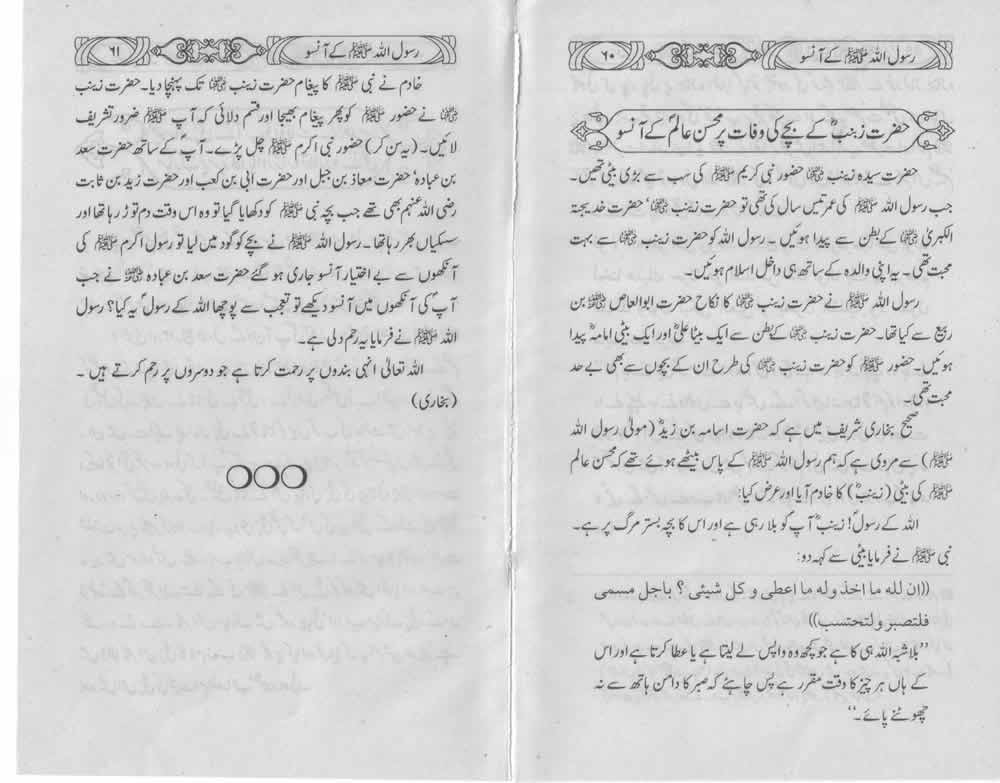 رسول اللہ ﷺ کے آنسو
۶۰
حضرت زینبؓ کے بچے کی وفات پر محسن عالمؐ کے آنسو
حضرت سیدہ زینب ؓ حضور نبی کریم ﷺ کی سب سے بڑی بیٹی تھیں۔
جب رسول اللہ ﷺ کی عمر تیس سال کی تھی تو حضرت زینب ؓ، حضرت خدیجتہ
الکبریٰ ؓ کے بطن سے پیدا ہوئیں۔ رسول اللہ کو حضرت زینب ؓ سے بہت
محبت تھی۔ یہ اپنی والدہ کے ساتھ ہی داخل اسلام ہوئیں۔
رسول اللہ ﷺ نے حضرت زینب ؓ کا نکاح حضرت ابوالعاص ؓ بن
ربیع سے کیا تھا۔ حضرت زینب ؓ کے بطن سے ایک بیٹا علیؓ اور ایک بیٹی امامہؓ پیدا
ہوئیں۔ حضور ﷺ کو حضرت زینب ؓ کی طرح ان کے بچوں سے بھی بے حد
محبت تھی۔
صحیح بخاری شریف میں ہے کہ حضرت اسامہ بن زیدؓ (مولیٰ رسول اللہ
ﷺ) سے مروی ہے کہ ہم رسول اللہ ﷺ کے پاس بیٹھے ہوئے تھے کہ محسن عالم
ﷺ کی بیٹی (زینبؓ) کا خادم آیا اور عرض کیا:
اللہ کے رسولؐ! زینبؓ آپ کو بلا رہی ہے اور اس کا بچہ بستر مرگ پر ہے۔
نبی ﷺ نے فرمایا بیٹی سے کہہ دو:
((ان لله ما اخذ وله ما اعطى و كل شيئى ؟ باجل مسمى
فلتصبر ولتحتسب))
”بلاشبہ اللہ ہی کا ہے جو کچھ وہ واپس لے لیتا ہے یا عطا کرتا ہے اور اس
کے ہاں ہر چیز کا وقت مقرر ہے پس چاہئے کہ صبر کا دامن ہاتھ سے نہ
چھوٹنے پائے۔“
رسول اللہ ﷺ کے آنسو
۶۱
خادم نے نبی ﷺ کا پیغام حضرت زینب ؓ تک پہنچا دیا۔ حضرت زینب
ؓ نے حضور ﷺ کو پھر پیغام بھیجا اور قسم دلائی کہ آپ ﷺ ضرور تشریف
لائیں۔ (یہ سن کر) حضور نبی اکرم ﷺ چل پڑے۔ آپؐ کے ساتھ حضرت سعد
بن عبادہ، حضرت معاذ بن جبل اور حضرت ابی بن کعب اور حضرت زید بن ثابت
رضی اللہ عنہم بھی تھے جب بچہ نبی ﷺ کو دکھایا گیا تو وہ اس وقت دم توڑ رہا تھا اور
سسکیاں بھر رہا تھا۔ رسول اللہ ﷺ نے بچے کو گود میں لیا تو رسول اکرم ﷺ کی
آنکھوں سے بے اختیار آنسو جاری ہو گئے حضرت سعد بن عبادہ ؓ نے جب
آپؐ کی آنکھوں میں آنسو دیکھے تو تعجب سے پوچھا اللہ کے رسولؐ یہ کیا؟ رسول
اللہ ﷺ نے فرمایا یہ رحم دلی ہے۔
اللہ تعالیٰ انہی بندوں پر رحمت کرتا ہے جو دوسروں پر رحم کرتے ہیں۔
(بخاری)